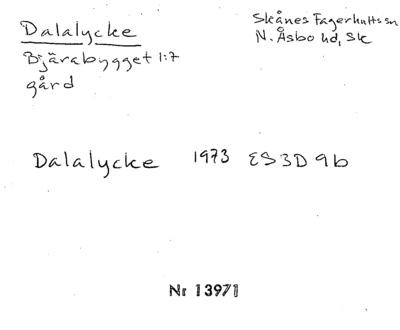 Dalalycke
Bjärabygget 1:7
gård
Skånes Fagerhults sn
N. Åsbo hd, Sk
Dalalycke 1973 ES3D9b
Nr 13971